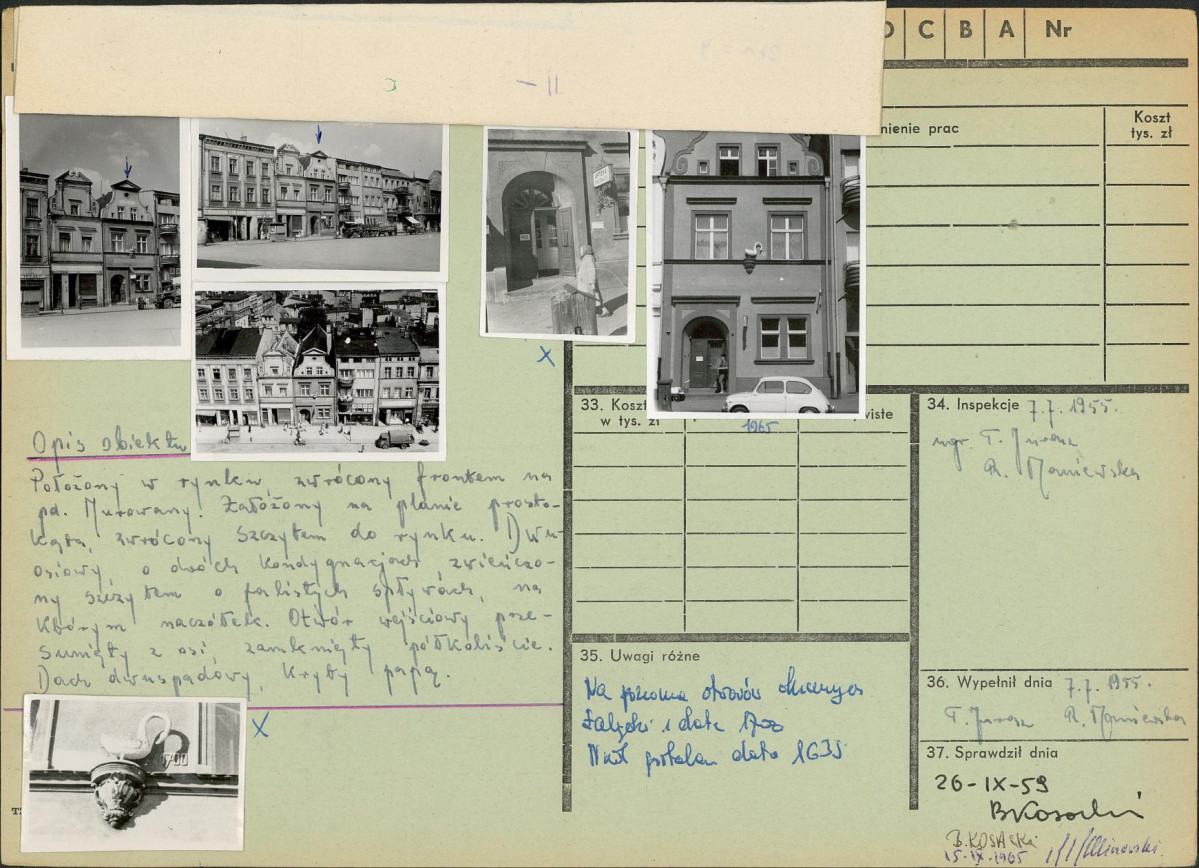 O C B A Nr
nienie prac
Koszt
tys. zł
Opis obiektu
Położony w rynku, zwrócony frontem na
pd. Murowany. Założony na planie prosto-
kąta, zwrócony szczytem do rynku. Dwu-
osiowy, o dwóch kondygnacjach zwieńczo-
ny szczytem o falistych spływach, na
którym naczółek. Otwór wejściowy prze-
sunięty z osi, zamknięty półkoliście.
Dach dwuspadowy, kryty papą.
X
X
1700
1965
33. Koszt
w tys. zł
34. Inspekcje 7.7.1955.
mgr. T. Jurasz
R. Maniewska
35. Uwagi różne
Na poziomie otworów
i data 1700
Nad portalem data 1635
36. Wypełnił dnia 7.7.1955.
T. Jurasz R. Maniewska
37. Sprawdził dnia
26-IX-59
B. KOSACKI
15-IX-1965